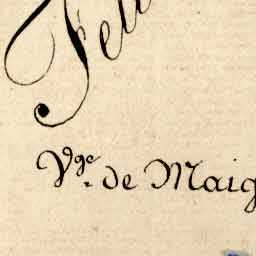 Feu
Vge. de Maig